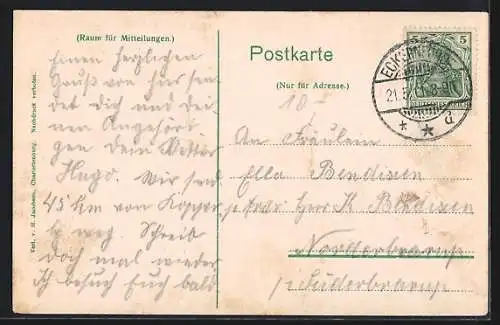 (Raum für Mitteilungen.)
Einen herzlichen
Gruß von hier sen
det dich und dei
nen Angehöri
gen dein Vetter
Hugo. Wir sind
45 km von
weg. Schreib
doch mal wieder
ich besuch Euch bald
Postkarte
(Nur für Adresse.)
5 5
21.5
* * a
An Fräulein
Ella Bendixen
p. Adr. Herr K. Bendixen
Norderbrarup
p. Süderbrarup
Nachdruck verboten.
Verl. v. M. Jacobsen, Charlottenburg.